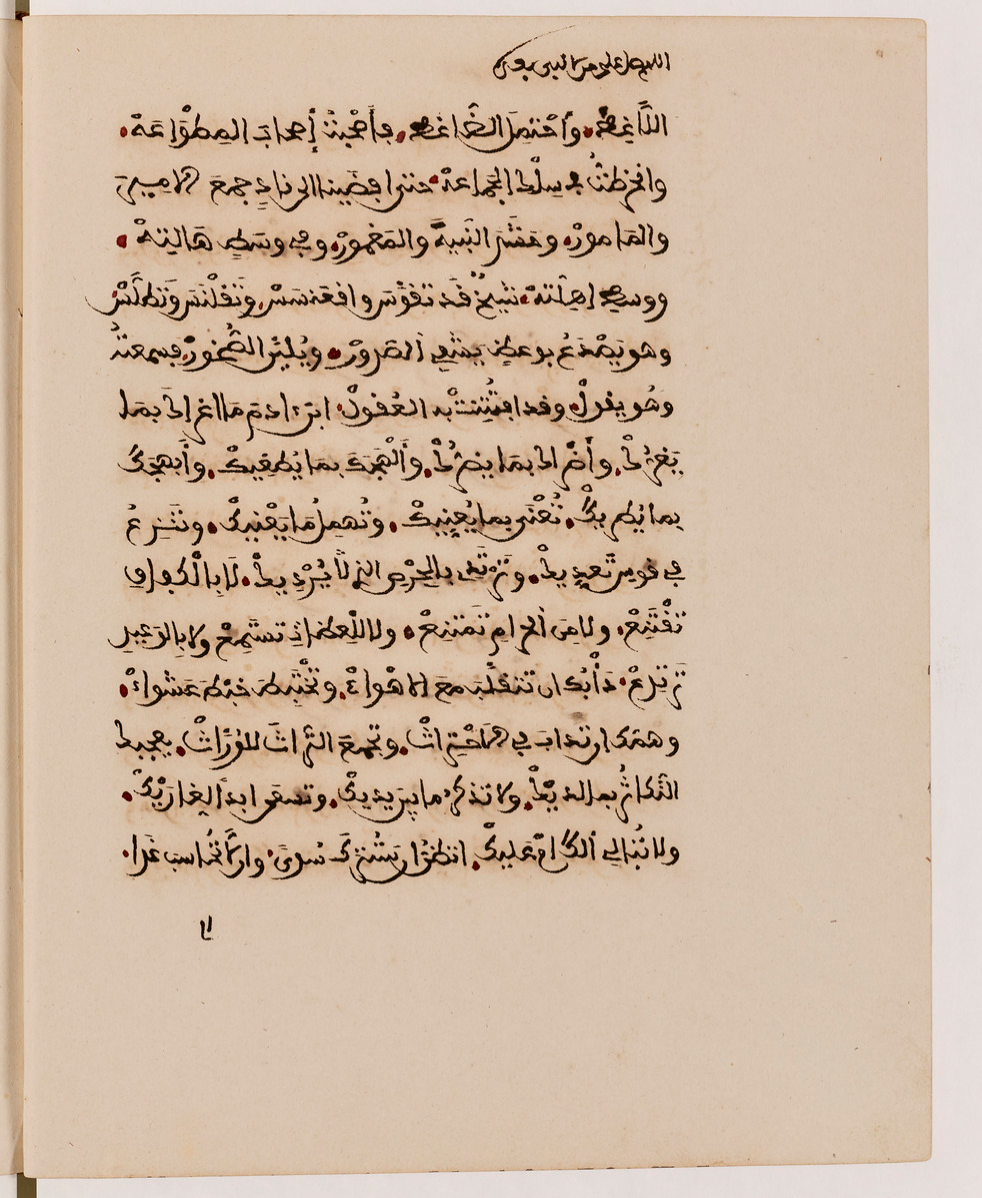 اللهم صل على من لا نبي بعده
اللَّاغِطْ. وأَحْتمِلَ الضَّاغطْ. فأَصْحَبْتُ إصحابَ المِطْوَاعَهْ.
وانخرَطْتُ في سلْكِ الجماعَهْ. حتى افضَينا الى نادٍ جمعَ الاميرَ
والمَامورْ. وحَشَرَ النَّبيهَ والمَغمورْ. وفي وسَطِ هَالتِهْ.
ووسطِ اهِلَّتهْ. شيخٌ قَد تقوّسَ واقعَنسَسْ. وَتَقلْنَسَ وَتطلَّسْ
وهو يَصْدَعُ بوعظٍ يشفي ألصّدورْ. ويُليّن الصُّخورْ. فسمعتُهُ
وهُو يقولْ. وقد افتُتنتْ به العُقولْ. ابنَ ادمَ مَا اغراكَ بمَا
يَغرُّكْ. وأَضراكَ بما يضرُّكْ. وأَلْهَجَكَ بما يُطغِيكْ. وأَبهجَكَ
بما يُطريكْ. تُعْنَى بما يُعنِيكْ. وتُهمِلُ مَا يَعْنيكْ. وتَنزعُ
في قوسِ تَعدِيكْ. وتَرتَدي بالحِرْصِ الذِي يُرْدِيكْ. لَا بالْكفافِ
تَقْتَنِعْ. ولا مِنَ ألحرامِ تَمتنِعْ. ولا للْعظاتِ تستَمِعْ ولا بالوَعيدِ
تَرتدِعْ. دَأْبُكَ ان تتقلّبَ معَ الاهْواءْ. وتَخْتَبطَ خبْطَ عَشواءْ.
وهمُّكَ ان تدابَ في الاحْتِراثْ. وتجمعَ التُّراثَ للوُرَّاثْ. يعجبكَ
التّكاثُر بما لديْكْ. ولا تذكر ما بين يديكْ. وتسعى ابدًا لِغارَيْكْ.
ولا تُبالي ألكَ امْ عَليكْ. اتظنُّ ان سَتُتركَ سُدىَ. وان لَّا تُحاسب غَدا.